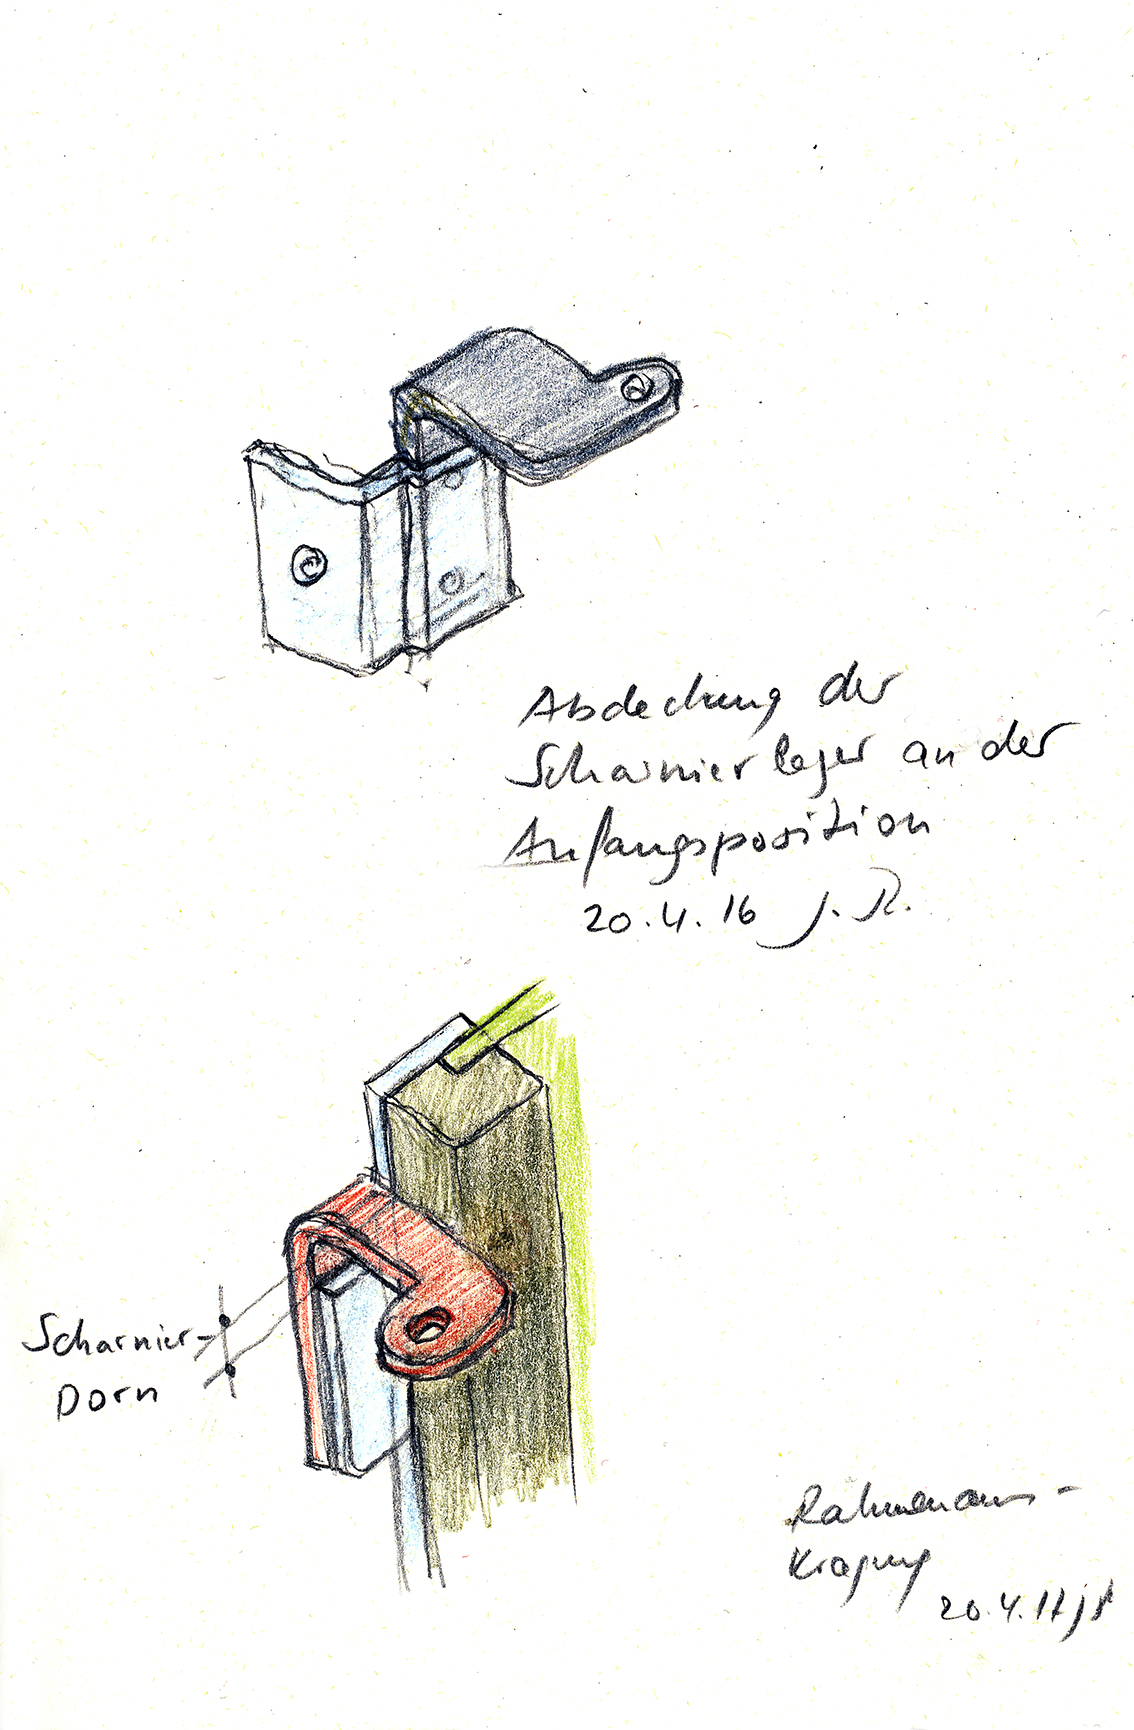 Abdeckung der
Scharnierlager an der
Anfangsposition
20.4.16 J.R.
Scharnier-
Dorn
Rahmenaus-
Kragung
20.4.17